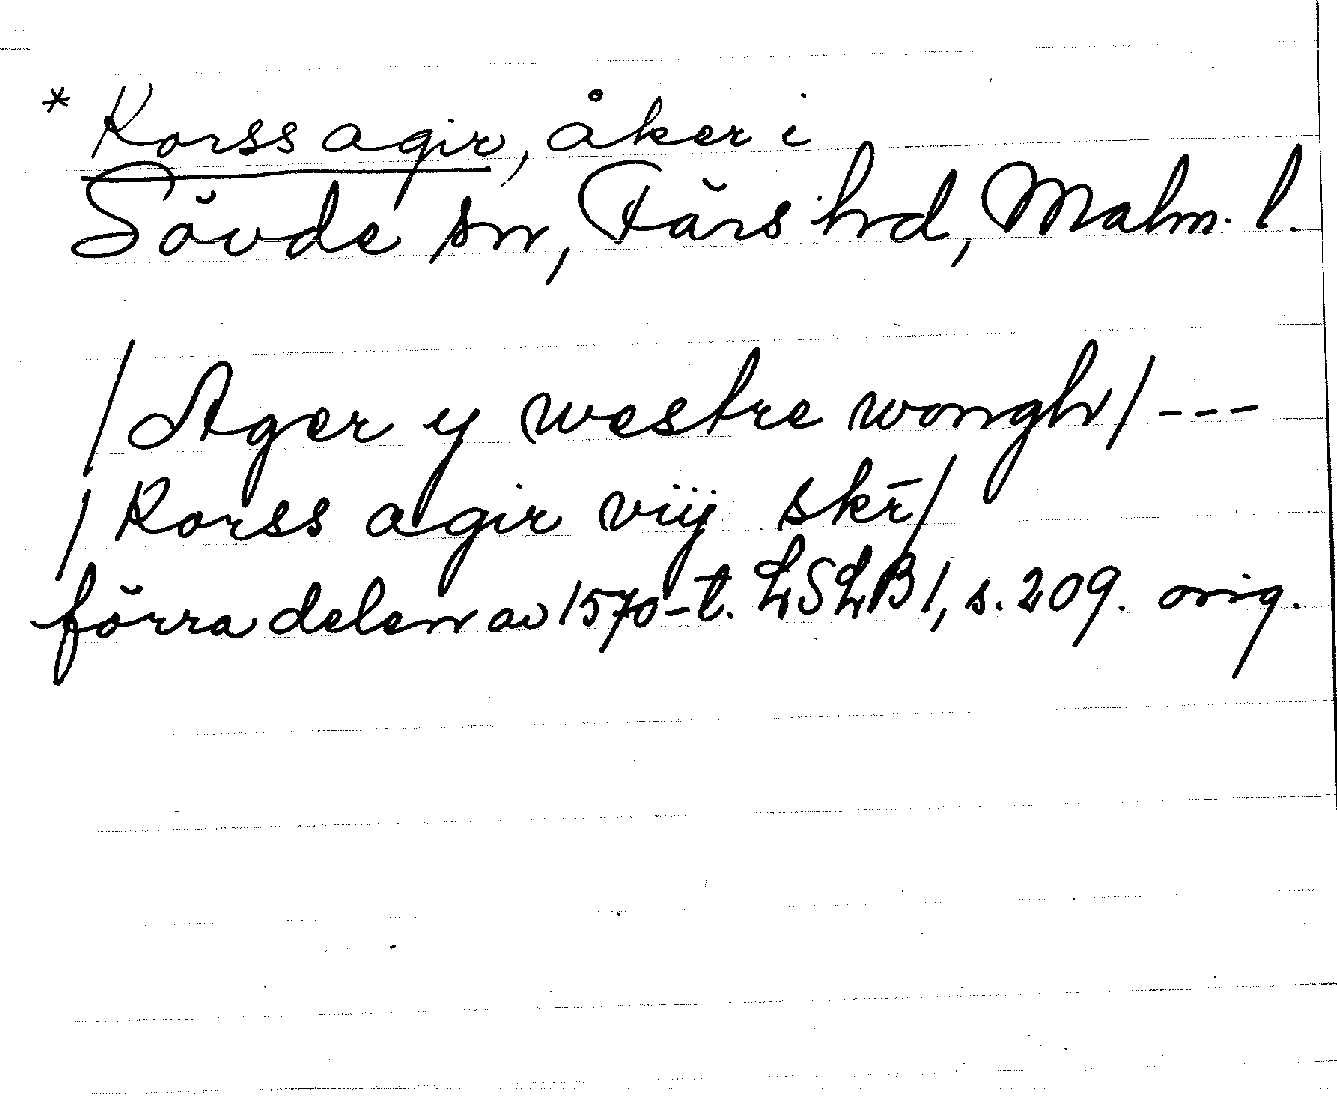 * Korss agir, åker i
Sövde sn, Färs hd, Malm. l.
/Ager y westre wongh/ ---
/Korss agir vij skr̄/
förra delen av 1570-t. LSLB 1, s. 209. orig.